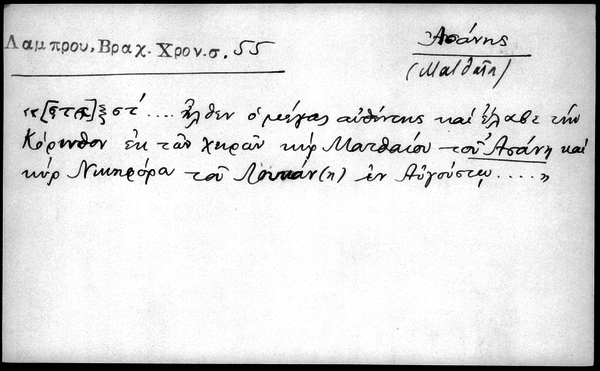 Λαμπρου, Βραχ. Χρον. σ. 55
Ἀσάνης
(Ματθαῖος)
«[ἔτει] ϛϡξϛʹ .... ἦλθεν ὁ μέγας αὐθέντης καὶ ἔλαβε τὴν
Κόρινθον ἐκ τῶν χειρῶν κὺρ Ματθαίου τοῦ Ἀσάνη καὶ
κὺρ Νικηφόρα τοῦ Λουκάν(η) ἐν Αὐγούστῳ ....»